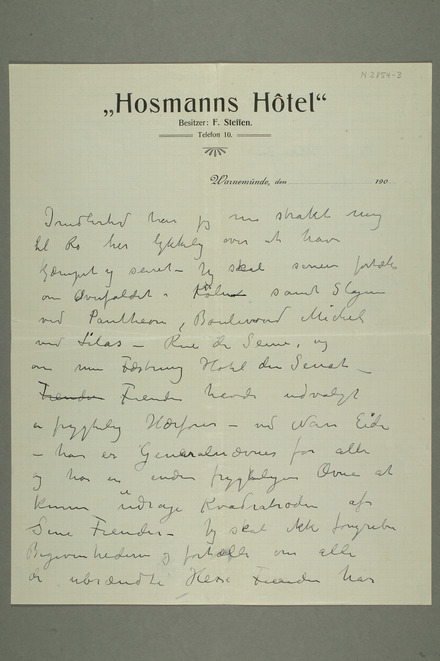 N 2854-3
„Hosmanns Hôtel“
Besitzer: F. Steffen.
Telefon 10.
Warnemünde, den 190
Imidlertid har jeg nu strakt mig
til Ro her lykkelig over at have
kæmpet og seiret – Jeg skal senere fortælle
om Overfaldet i Kölnet samt Slagene
ved Pantheon, Boulevard Michel
ved Lilas – Rue de Seine, og
om min Fæstning Hotel du Senat –
Fienden Fienden havde udvalgt
en frygtelig Hærfører – ved Navn Eide
– han er Generalnævnes for alle
og har en anden frygtelig Evne at
kunne uddrage Kvadratroden af
Sine Fiender – Jeg skal ikke foregribe
Begivenhederne og fortælle om alle
de ubrændte Hexe Fienden har